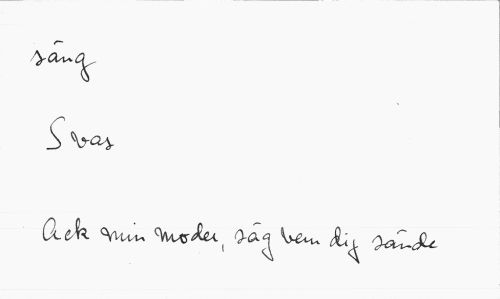 sång
Svas
Ack min moder, säg vem dig sände